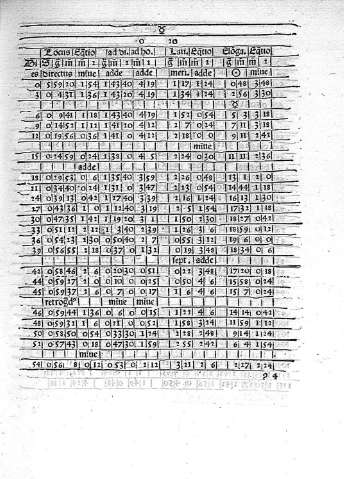 ☿
0 20
Locus Eq̃tio ad di. ad ho. Lati. Eq̃tio Elõga. Eq̃tio
Di S g̃ m̃ m̃ 2 g̃ m̃ m̃ 2 g̃ m̃ m̃ 2 g̃ m̃ m̃ 2
es directus mïue adde adde meri. adde ☉ mïue
0 5 59 20 1 54 1 43 40 4 19 1 17 1 24 0 48 3 48
3 0 4 31 1 36 1 43 20 4 19 1 34 1 24 2 56 3 30
☿
6 0 9 41 1 18 1 43 40 4 19 1 52 0 54 5 3 3 18
9 0 14 52 1 12 1 41 20 4 12 2 7 0 24 7 11 3 18
12 0 19 56 0 36 1 41 0 4 12 2 18 0 0 9 11 2 42
mïue
15 0 24 59 0 24 1 32 0 4 5 2 24 0 30 11 11 2 36
adde
18 0 29 53 0 6 1 35 40 3 59 2 26 0 48 13 1 2 0
21 0 34 40 0 24 1 31 0 3 47 2 23 0 54 14 44 1 48
24 0 39 13 0 42 1 27 40 3 39 2 16 1 24 16 13 1 30
27 0 43 36 1 0 1 12 40 3 19 2 5 1 54 17 32 1 18
30 0 47 35 1 42 1 19 20 3 1 1 50 2 30 18 27 0 42
33 0 51 12 2 12 1 3 40 2 39 1 26 3 18 18 59 0 12
36 0 54 23 2 30 0 50 40 2 7 0 55 3 12 19 6 0 0
39 0 56 55 2 18 0 37 0 1 32 0 19 3 48 18 34 0 6
sept. adde
42 0 58 46 2 6 0 20 30 0 51 0 22 3 48 17 20 0 18
44 0 59 27 2 0 0 10 0 0 25 0 50 4 6 15 58 0 24
45 0 59 37 2 6 0 7 0 0 17 1 6 4 6 15 7 0 24
retrog̃dꝰ mïue mïue
46 0 59 44 1 36 0 6 0 0 15 1 22 4 6 14 14 0 42
48 0 59 31 1 6 0 21 0 0 52 1 58 3 24 11 59 1 12
50 0 58 50 0 54 0 33 30 1 24 2 28 2 48 9 14 1 24
52 0 57 43 0 18 0 47 30 1 59 2 55 2 42 6 4 1 54
mïue
54 0 56 8 0 12 0 53 0 2 12 3 21 2 6 2 27 2 24
9 4